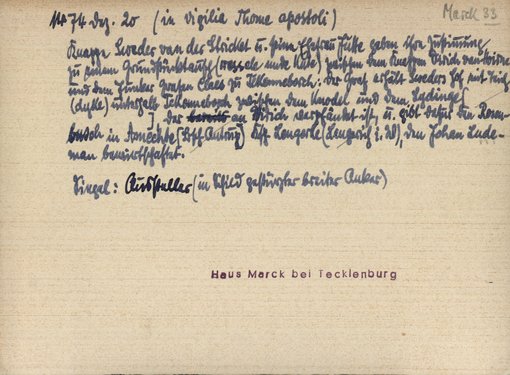 Marck 33
1474 Dez. 20 (in vigilia Thome apostoli)
Knappe Sweder van der Stricket u. seine Ehefrau Jutte geben ihre Zustimmung
zu einem Grundstückstausch (wessele unde kute) zwischen dem Knappen Dirich van
und dem Junker Grafen Claes zu Tekeneborch: der Graf erhält Sweders Hof mit Teich
(dyke) unterhalb Tekenneborch zwischen dem und dem [
], der bereits an Dirich verschänkt ist, u. gibt dafür den Rosen-
busch in (Bsch. Antrup) Ksp. Lengerke (Lengerich i. W), den Johan Lude-
man bewirtschaftet.
Siegel: Aussteller (im Schild gestürzter breiter Anker)
Haus Marck bei Tecklenburg